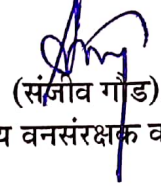 (संजीव गौड)
य वनसंरक्षक व